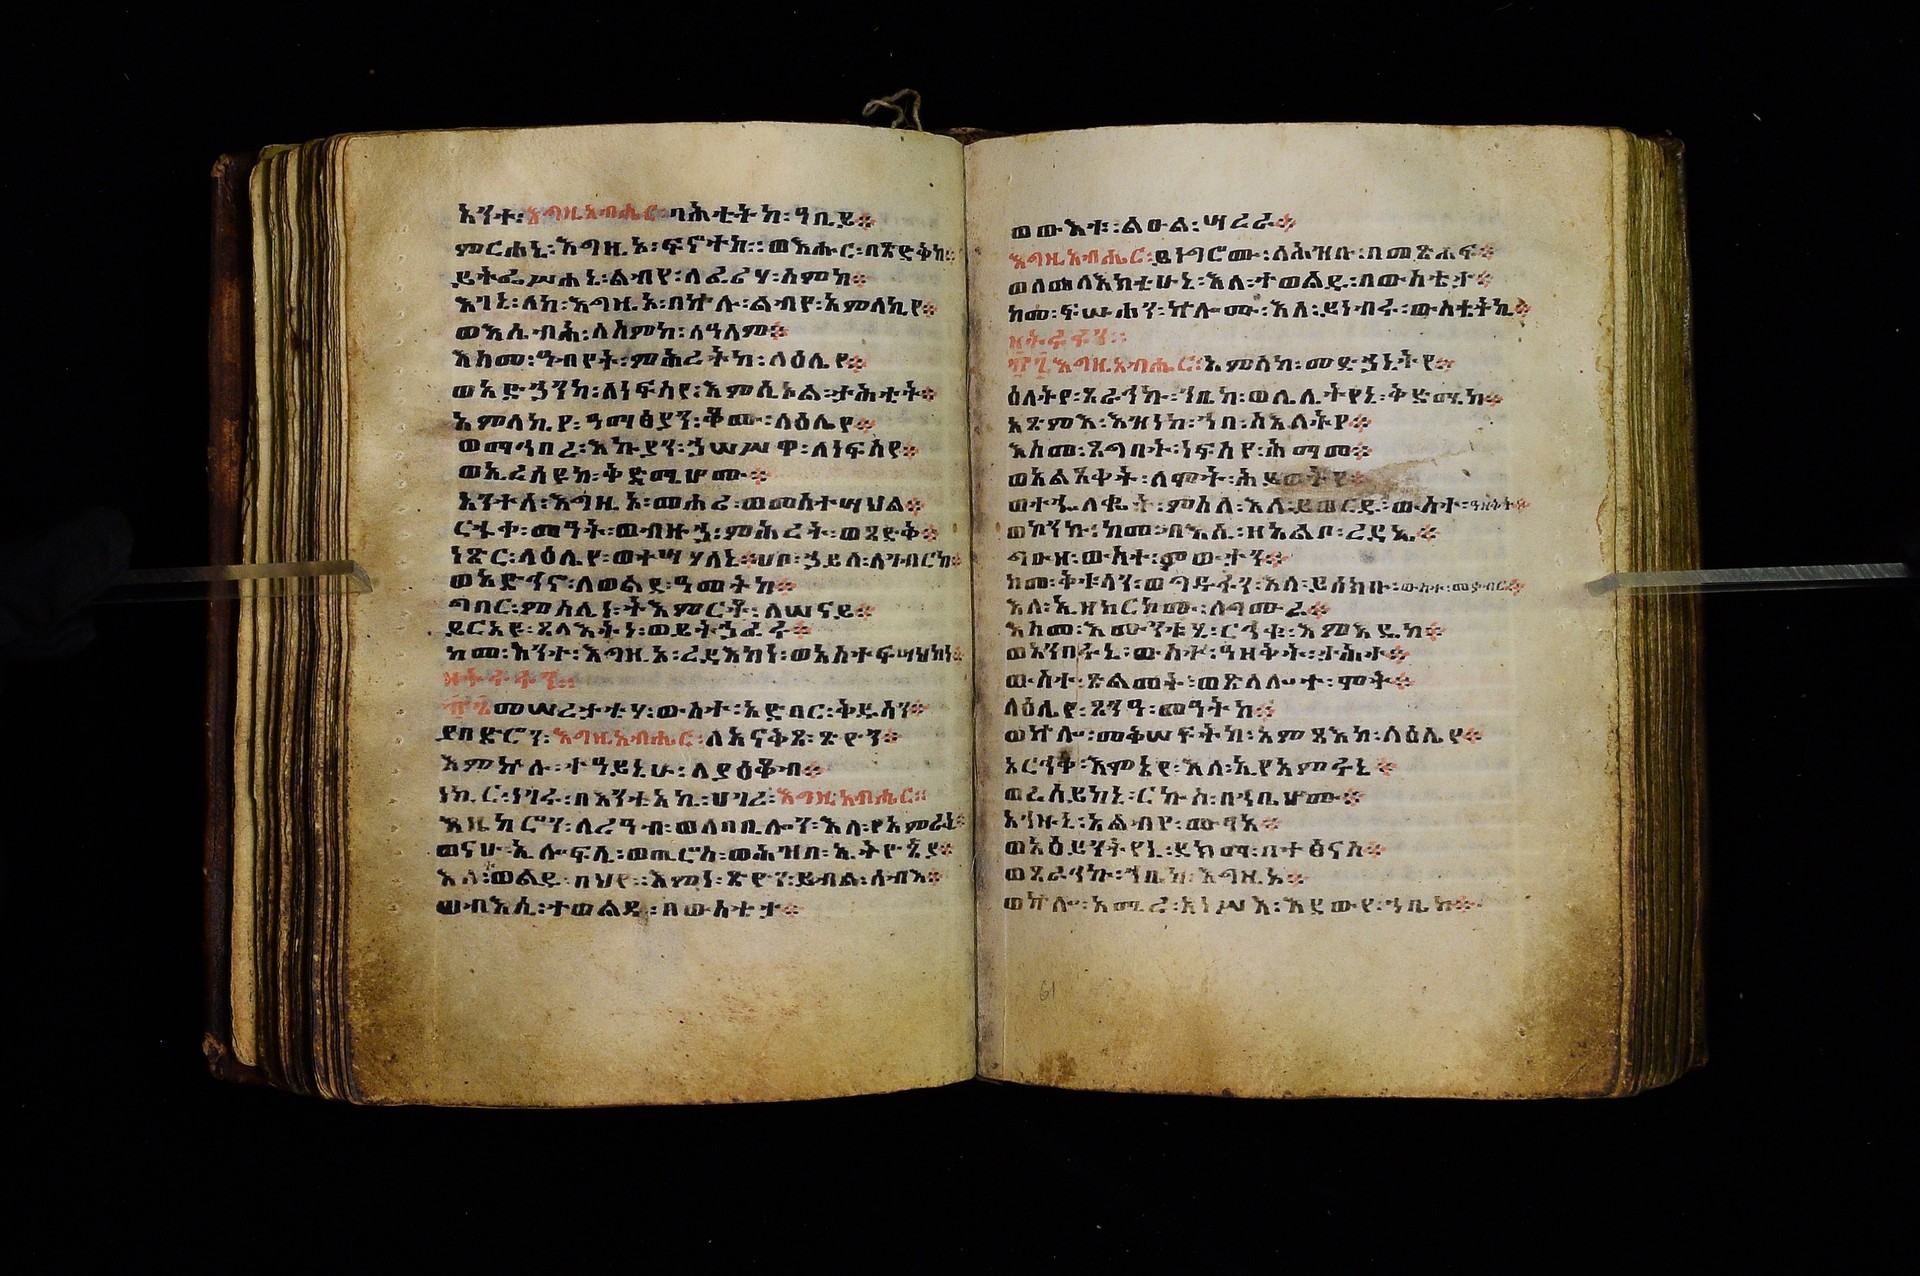 አንተ፡ እግዚአብሔር፡ ባሕቲትከ፡ ዓቢይ፨
ምርሐኒ፡ እግዚኦ፡ ፍኖተከ፡፡ ወእሑር፡ በጽድቅከ፨
ይትፌሥሐኒ፡ ልብየ፡ ለፈሪሃ፡ ስምከ፨
እገኒ፡ ለከ፡ እግዚኦ፡ በኵሉ፡ ልብየ፡ አምላኪየ፨
ወእሴብሕ፡ ለስምከ፡ ለዓለም፨
እስመ፡ ዓብየት፡ ምሕረትከ፡ ላዕሌየ፨
ወአድኃንካ፡ ለነፍስየ፡ እምሲኦል፡ ታሕቲት፨
አምላኪየ፡ ዓማፅያን፡ ቆሙ፡ ላዕሌየ፨
ወማኅበረ፡ እኩያን፡ ኃሠሥዋ፡ ለነፍስየ፨
ወኢረሰዩከ፡ ቅድሜሆሙ፨
አንተሰ፡ እግዚኦ፡ መሐሪ፡ ወመስተሣህል፨
ርኁቀ፡ መዓት፡ ወብዙኃ፡ ምሕረት፡ ወጻድቅ፨
ነጽር፡ ላዕሌየ፡ ወተሣሃለኒ፨ ሀቦ፡ ኃይለ፡ ለገብርከ፨
ወአድኅኖ፡ ለወልደ፡ ዓመትከ፨
ግበር፡ ምስሌነ፡ ትእምርተ፡ ለሠናይ፨
ይርአዩ፡ ጸላእትነ፡ ወይትኃፈሩ፨
ከመ፡ አንተ፡ እግዚኦ፡ ረዳእከነ፡ ወአስተፍሣህከነ፨
ዘትዶዶን፡፡
፹፮ መሠረታቲሃ፡ ውስተ፡ አድባር፡ ቅዱሳን፨
ያበድሮን፡ እግዚአብሔር፡ ለአናቅጸ፡ ጽዮን፨
እምኵሉ፡ ተዓይኒሁ፡ ለያዕቆብ፨
ነኪር፡ ነገሩ፡ በእንቲአኪ፡ ሀገረ፡ እግዚአብሔር፡፡
እዜክሮን፡ ለረዓብ፡ ወለባቢሎን፡ እለ፡ የአምራኒ፨
ወናሁ፡ ኢሎፍሊ፡ ወጢሮስ፡ ወሕዝበ፡ ኢትዮጵያ፨
እለ፡ ወልዱ፡ በህየ፡፡ እምነ፡ ጽዮን፡ ይብል፡ ሰብእ፨
ወብእሲ፡ ተወልደ፡ በውስቴታ፨
ወውእቱ፡ ልዑል፡ ሣረራ፨
እግዚአብሔር፡ ይነግሮሙ፡ ለሕዝቡ፡ በመጽሐፍ፨
ወለመላእክቲሁኒ፡ እለ፡ ተወልዱ፡ በውስቴታ፨
ከመ፡ ፍሡሓን፡ ኵሎሙ፡ እለ፡ ይነብሩ፡ ውስቴትኪ፨
፹፯ እግዚአብሔር፡ አምላከ፡ መድኃኒትየ፨
ዕለትየ፡ ጸራኅኩ፡ ኀቤከ፡ ወሌሊትየኒ፡ ቅድሜከ፨
አጽምእ፡ እዝነከ፡ ኀበ፡ ስእለትየ፨
እስመ፡ ጸግበት፡ ነፍስየ፡ ሕማመ፨
ወአልጸቀት፡ ለሞት፡ ሕይወትየ፨
ወተኈለቁ፡ ምስለ፡ እለ፡ ይወርዱ፡ ውስተ፡ ዓዘቅት፨
ወኮንኩ፡ ከመ፡ ብእሲ፡ ዘአልቦ፡ ረዳኢ፨
ግዑዝ፡ ውስተ፡ ምውታን፨
ከመ፡ ቅቱላን፡ ወግዱፋን፡ እለ፡ ይሰክቡ፡ ውስተ፡ መቃብር፨
እለ፡ ኢዘከርኮሙ፡ ለግሙራ፨
እስመ፡ እሙንቱሂ፡ ርኅቁ፡ እምእዴከ፨
ወአንበሩኒ፡ ውስተ፡ ዓዘቅት፡ ታሕተ፨
ውስተ፡ ጽልመት፡ ወጽላሎተ፡ ሞት፨
ላዕሌየ፡ ጸንዓ፡ መዓትከ፨
ወኵሎ፡ መቅሠፍተከ፡ አምጻእከ፡ ላዕሌየ፨
አርኀቀ፡ እምኔየ፡ እለ፡ ኢየአምሩኒ፨
ወረሰይከኒ፡ ርኩሰ፡ በኀቤሆሙ፨
አኀዙኒ፡ አልብየ፡ ሙፃአ፨
ወአዕይንትየኒ፡ ደክማ፡ በተፅናስ፨
ወጸራኅኩ፡ ኀቤከ፡ እግዚኦ፨
ወኵሎ፡ አሚረ፡ አነሥእ፡ እደውየ፡ ኀቤከ፨
61